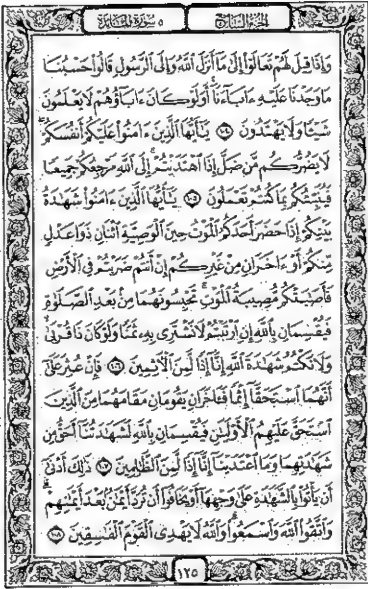 الجزء السابع ٥ سورة المائدة
وَإِذَا قِيلَ لَهُمْ تَعَالَوْا۟ إِلَىٰ مَآ أَنزَلَ ٱللَّهُ وَإِلَى ٱلرَّسُولِ قَالُوا۟ حَسْبُنَا
مَا وَجَدْنَا عَلَيْهِ ءَابَآءَنَآ ۚ أَوَلَوْ كَانَ ءَابَآؤُهُمْ لَا يَعْلَمُونَ
شَيْـًٔا وَلَا يَهْتَدُونَ ١٠٤ يَـٰٓأَيُّهَا ٱلَّذِينَ ءَامَنُوا۟ عَلَيْكُمْ أَنفُسَكُمْ ۖ
لَا يَضُرُّكُم مَّن ضَلَّ إِذَا ٱهْتَدَيْتُمْ ۚ إِلَى ٱللَّهِ مَرْجِعُكُمْ جَمِيعًا
فَيُنَبِّئُكُم بِمَا كُنتُمْ تَعْمَلُونَ ١٠٥ يَـٰٓأَيُّهَا ٱلَّذِينَ ءَامَنُوا۟ شَهَـٰدَةُ
بَيْنِكُمْ إِذَا حَضَرَ أَحَدَكُمُ ٱلْمَوْتُ حِينَ ٱلْوَصِيَّةِ ٱثْنَانِ ذَوَا عَدْلٍ
مِّنكُمْ أَوْ ءَاخَرَانِ مِنْ غَيْرِكُمْ إِنْ أَنتُمْ ضَرَبْتُمْ فِى ٱلْأَرْضِ
فَأَصَـٰبَتْكُم مُّصِيبَةُ ٱلْمَوْتِ ۚ تَحْبِسُونَهُمَا مِنۢ بَعْدِ ٱلصَّلَوٰةِ
فَيُقْسِمَانِ بِٱللَّهِ إِنِ ٱرْتَبْتُمْ لَا نَشْتَرِى بِهِۦ ثَمَنًا وَلَوْ كَانَ ذَا قُرْبَىٰ ۙ
وَلَا نَكْتُمُ شَهَـٰدَةَ ٱللَّهِ إِنَّآ إِذًا لَّمِنَ ٱلْـَٔاثِمِينَ ١٠٦ فَإِنْ عُثِرَ عَلَىٰٓ
أَنَّهُمَا ٱسْتَحَقَّآ إِثْمًا فَـَٔاخَرَانِ يَقُومَانِ مَقَامَهُمَا مِنَ ٱلَّذِينَ
ٱسْتَحَقَّ عَلَيْهِمُ ٱلْأَوْلَيَـٰنِ فَيُقْسِمَانِ بِٱللَّهِ لَشَهَـٰدَتُنَآ أَحَقُّ مِن
شَهَـٰدَتِهِمَا وَمَا ٱعْتَدَيْنَآ إِنَّآ إِذًا لَّمِنَ ٱلظَّـٰلِمِينَ ١٠٧ ذَٰلِكَ أَدْنَىٰٓ
أَن يَأْتُوا۟ بِٱلشَّهَـٰدَةِ عَلَىٰ وَجْهِهَآ أَوْ يَخَافُوٓا۟ أَن تُرَدَّ أَيْمَـٰنٌۢ بَعْدَ أَيْمَـٰنِهِمْ ۗ
وَٱتَّقُوا۟ ٱللَّهَ وَٱسْمَعُوا۟ ۗ وَٱللَّهُ لَا يَهْدِى ٱلْقَوْمَ ٱلْفَـٰسِقِينَ ١٠٨
١٢٥